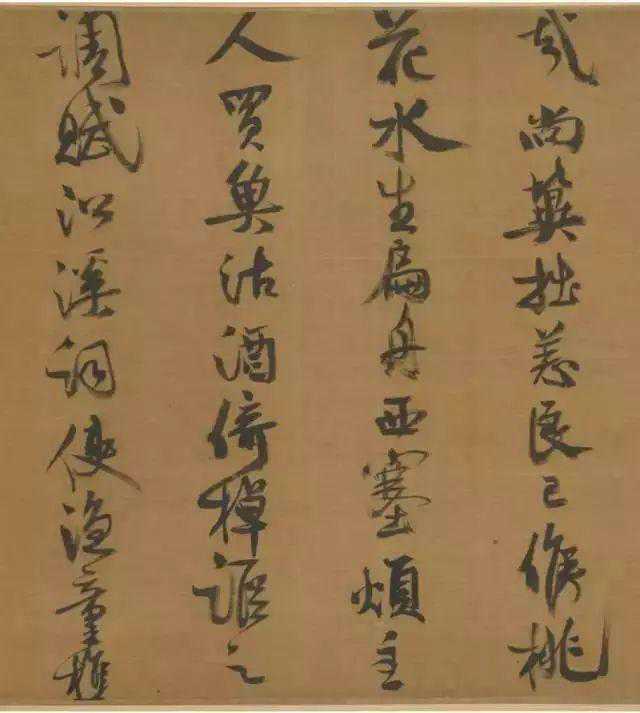 哉尚冀拙恙良已候桃
花水生扁舟西塞煩主
人買魚沽酒倚棹謳之
調賦沿溪詞使漁童樵